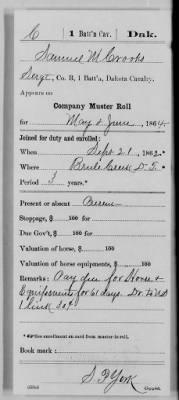 C | 1 Batt'n Cav. | Dak.
Samuel M Crooks
Sergt, Co. B, 1 Batt'n, Dakota Cavalry.
Appears on
Company Muster Roll
for May & June, 1864.
Joined for duty and enrolled:
When Sept 21, 1862.*
Where Brule Creek D. T.*
Period 3 years.*
Present or absent Present
Stoppage, $ 100 for
Due Gov't, $ 100 for
Valuation of horse, $ 100
Valuation of horse equipments, $ 100
Remarks: Pay due for Horse &
Equipments for 61 days. Dr. to U.S
1
*See enrollment on card from muster-in roll.
Book mark:
S. P. York
Copyist.